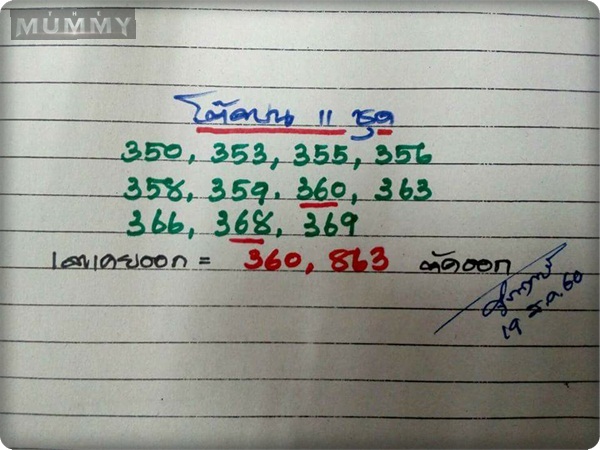 THE
MUMMY
โต๊ดบน 11 ชุด
350, 353, 355, 356
358, 359, 360, 363
366, 368, 369
เลขเคยออก = 360, 863 ตัดออก
19 ธ.ค. 60